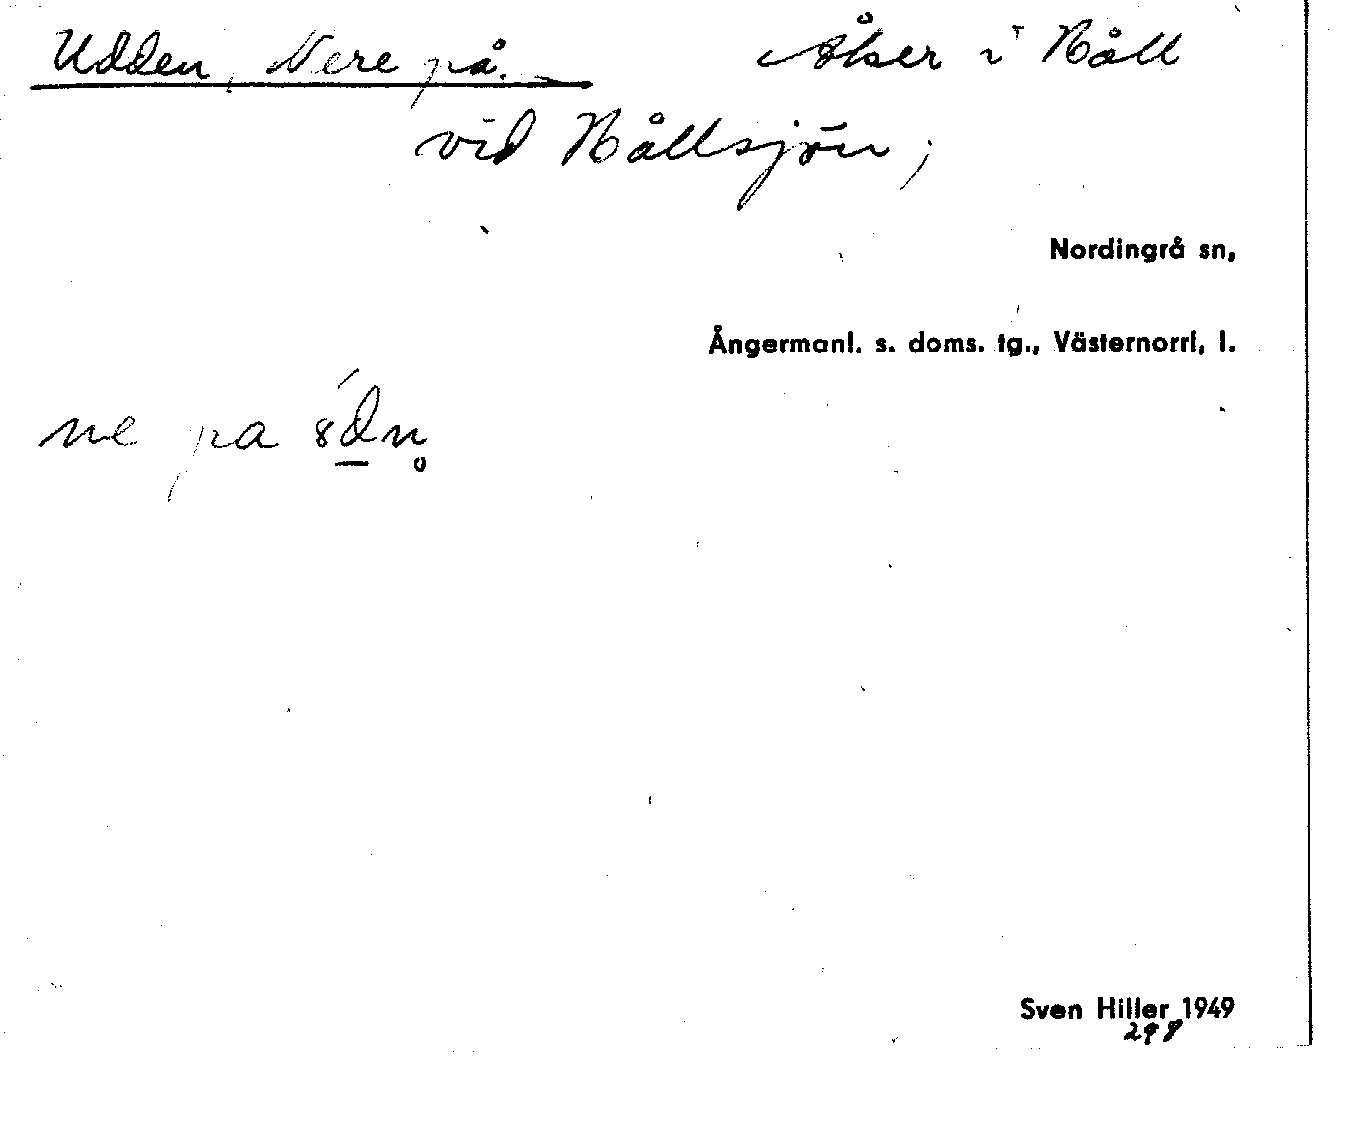 Udden, Nere på. Åker i Håll
vid Hållsjön;
Nordingrå sn,
Ångermanl. s. doms. tg., Västernorrl. l.
ne pa
Sven Hiller 1949
298